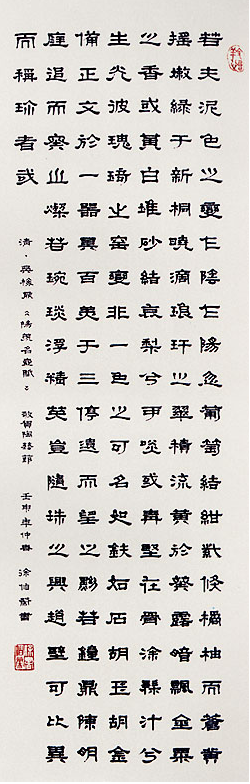 若夫泥色之變乍陰乍陽忽葡萄結紺紫倏橘柚而蒼黃
搖嫩綠于新桐曉滴琅玕之翠積流黃於葵露暗飄金粟
之香或黃白堆砂結哀梨兮可啖或青堅在骨塗髹汁兮
生光彼瑰琦之窯變非一色之可名如鉄如石胡玉胡金
備五文於一器具百美于三停遠而望之黝若鐘鼎陳明
庭迫而察之燦若琬琰浮精英豈隨珠之與趙璧可比異
而稱珍者哉
清·吳梅鼎《陽羨名壺賦》 陶藝館 壬申年仲春 徐伯 書